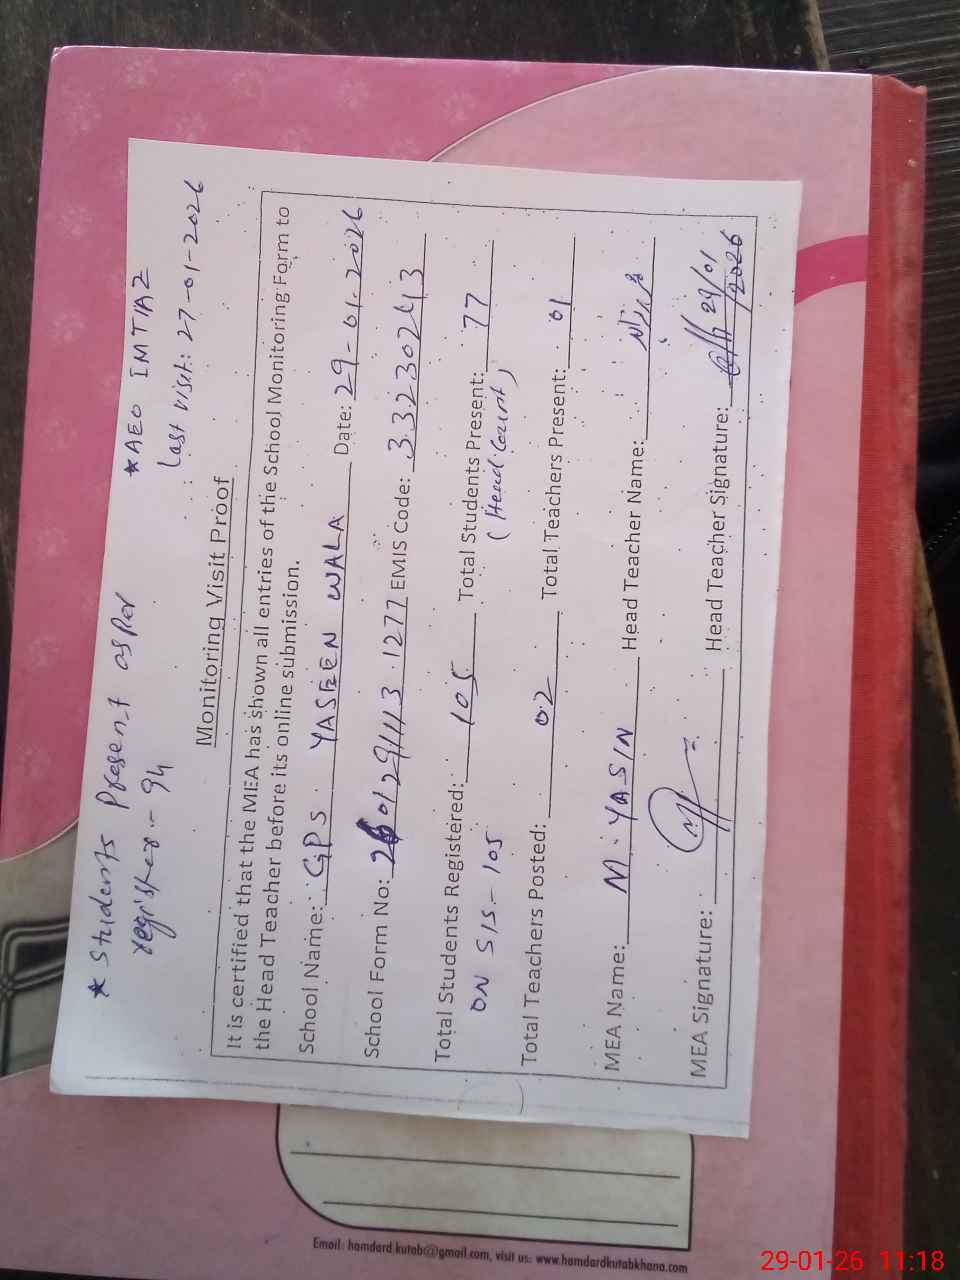 * Students Present as per
register:- 94
* AEO IMTIAZ
Last visit: 27-01-2026
Monitoring Visit Prof
It is certified that the MEA has shown all entries of the School Monitoring Form to
the Head Teacher before its online submission.
School Name: GPS YASEEN WALA Date: 29-01-2026
School Form No: 260129111131277 EMIS Code: 33230243
Total Students Registered: 105 Total Students Present: 77
ON SIS - 105 (Head Count)
Total Teachers Posted: 02 Total Teachers Present: 01
MEA Name: M. YASIN Head Teacher Name:
MEA Signature: Head Teacher Signature: 29/01
2026
Email: hamdard.kutab@gmail.com, visit us: www.hamdardkutabkhana.com
29-01-26 11:18